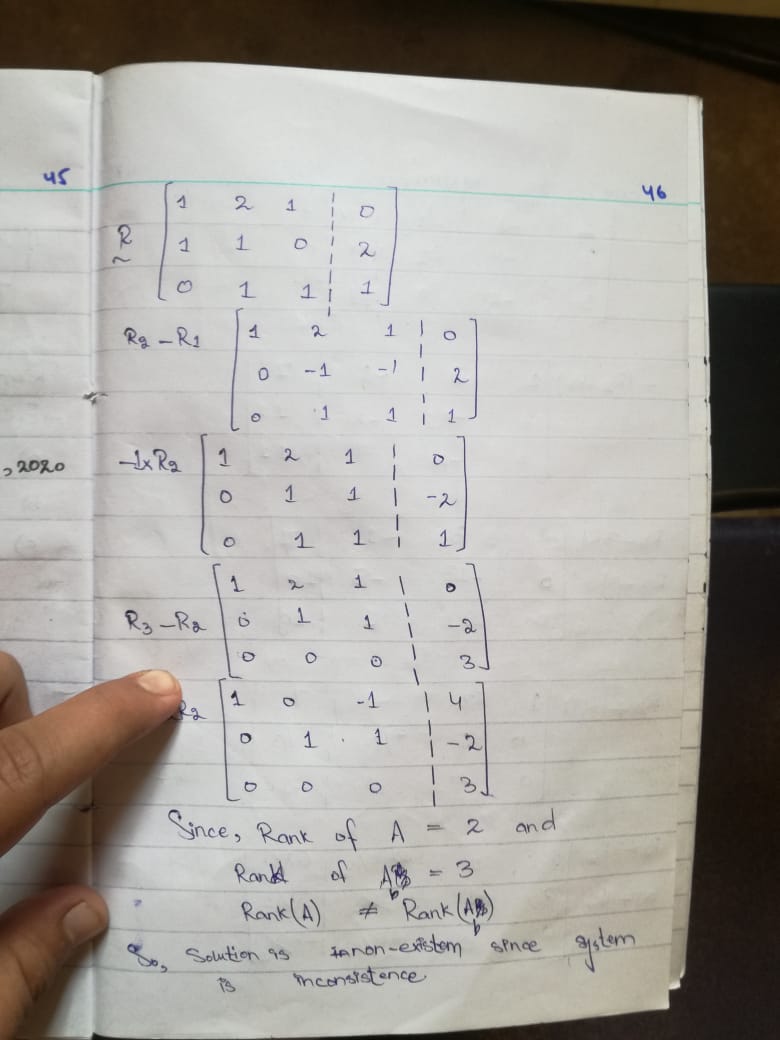 45
46
, 2020
R ~ [1 2 1 | 0
1 1 0 | 2
0 1 1 | 1]
R2 - R1 [1 2 1 | 0
0 -1 -1 | 2
0 1 1 | 1]
-1xR2 [1 2 1 | 0
0 1 1 | -2
0 1 1 | 1]
R3 - R2 [1 2 1 | 0
0 1 1 | -2
0 0 0 | 3]
R2 [1 0 -1 | 4
0 1 1 | -2
0 0 0 | 3]
Since, Rank of A = 2 and
Rank of Ab = 3
Rank(A) ≠ Rank(Ab)
So, Solution is non-existem since system
is inconsistence